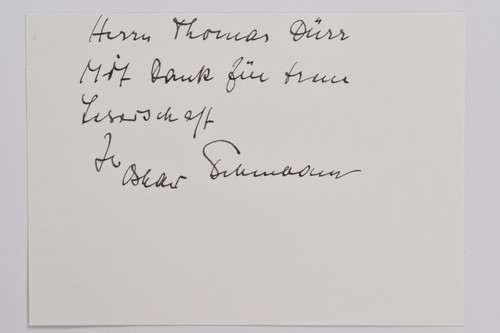 Herrn Thomas Dürr
Mit Dank für treue
Leserschaft
Ihr
Oskar